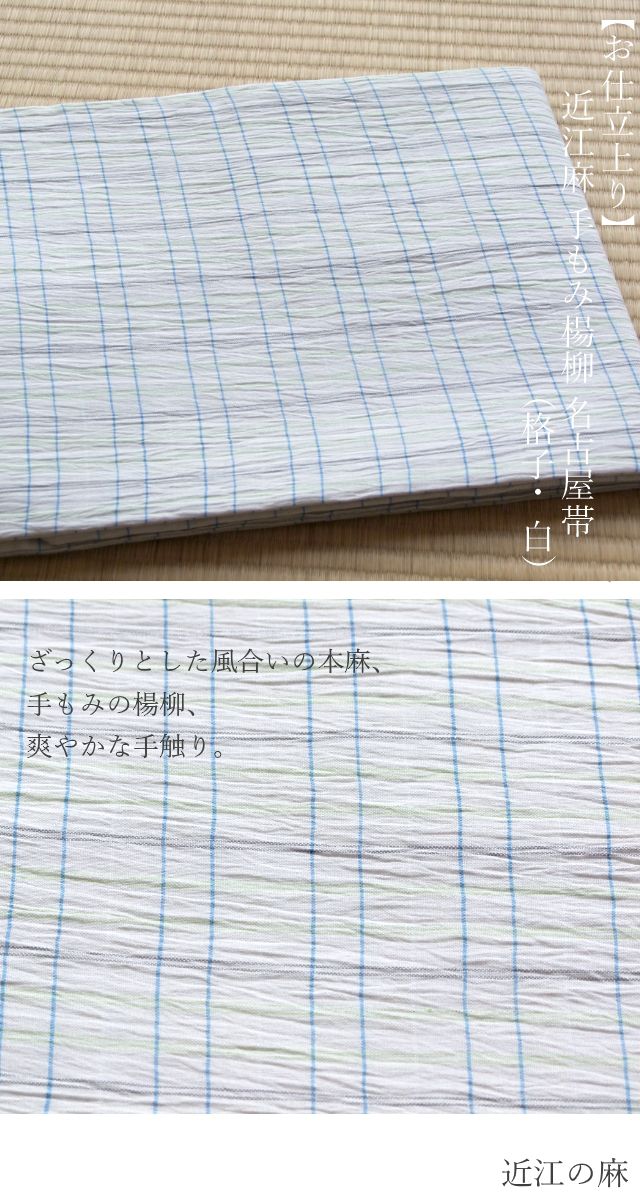 【お仕立上り】
近江麻 手もみ楊柳 名古屋帯
（格子・白）
ざっくりとした風合いの本麻、
手もみの楊柳、
爽やかな手触り。
近江の麻